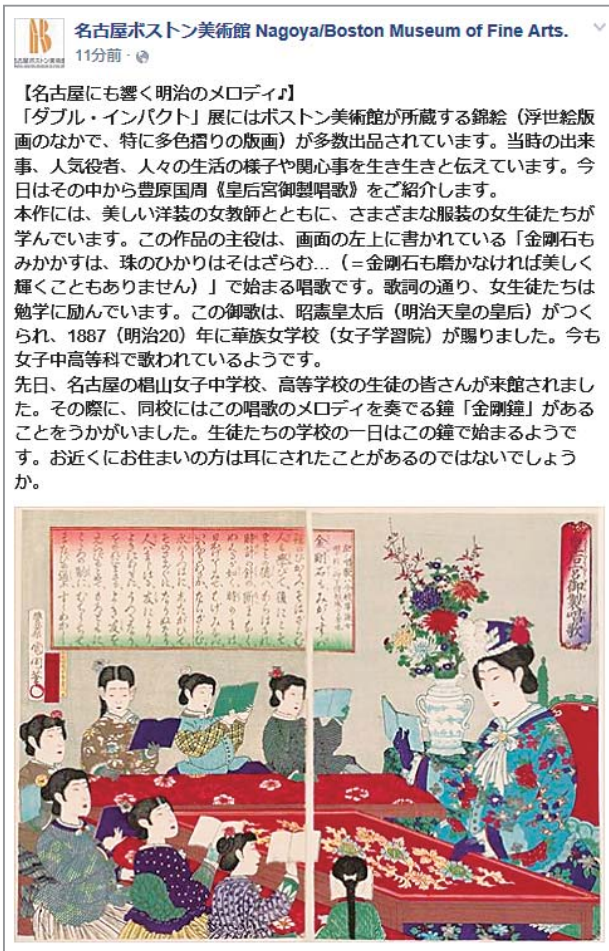 名古屋ボストン美術館 Nagoya/Boston Museum of Fine Arts.
11分前
【名古屋にも響く明治のメロディ♪】
「ダブル・インパクト」展にはボストン美術館が所蔵する錦絵(浮世絵版
画のなかで、特に多色摺りの版画)が多数出品されています。当時の出来
事、人気役者、人々の生活の様子や関心事を生き生きと伝えています。今
日はその中から豊原国周《皇后宮御製唱歌》をご紹介します。
本作には、美しい洋装の女教師とともに、さまざまな服装の女生徒たちが
学んでいます。この作品の主役は、画面の左上に書かれている「金剛石も
みかかすは、珠のひかりはそはざらむ…(=金剛石も磨かなければ美しく
輝くこともありません)」で始まる唱歌です。歌詞の通り、女生徒たちは
勉学に励んでいます。この御歌は、昭憲皇太后(明治天皇の皇后)がつく
られ、1887(明治20)年に華族女学校(女子学習院)が賜りました。今も
女子中高等科で歌われているようです。
先日、名古屋の椙山女子中学校、高等学校の生徒の皆さんが来館されまし
た。その際に、同校にはこの唱歌のメロディを奏でる鐘「金剛鐘」がある
ことをうかがいました。生徒たちの学校の一日はこの鐘で始まるようで
す。お近くにお住まいの方は耳にされたことがあるのではないでしょう
か。
皇后宮御製唱歌